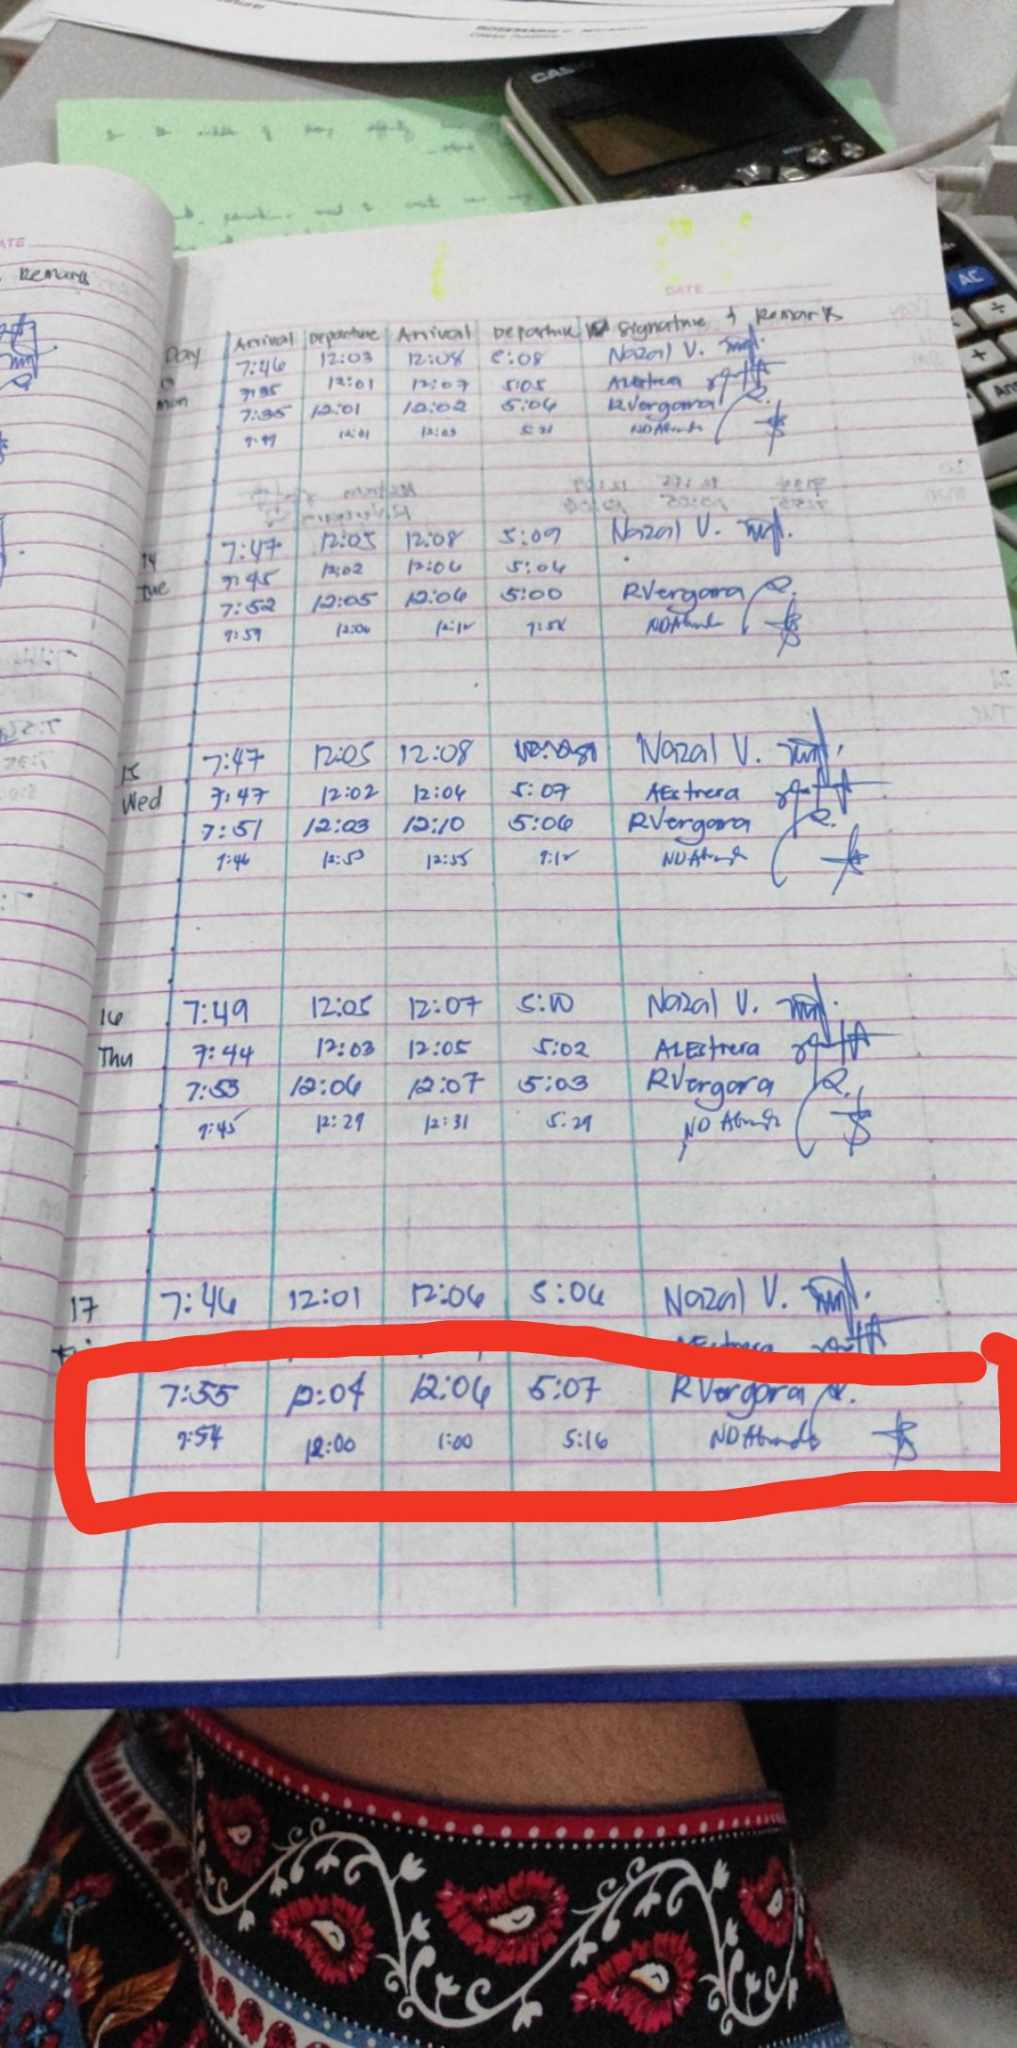 CASIO
DATE
Remarks
DATE
AC
÷
+
Ans
Day Arrival Departure Arrival Departure Signature & Remarks
7:46 12:03 12:08 5:08 Nazal V.
Mon 7:35 12:01 12:07 5:05 AEstrera
7:35 12:01 12:02 5:04 RVergara
12:01 5:31
14 7:47 12:05 12:08 5:09 Nazal V.
Tue 7:45 12:02 12:04 5:04
7:52 12:05 12:06 5:00 RVergara
7:59 12:06 12:12
15 7:47 12:05 12:08 Nazal V.
Wed 7:47 12:02 12:04 5:07 AEstrera
7:51 12:03 12:10 5:06 RVergara
7:46 12:53 12:55 7:12
16 7:49 12:05 12:07 5:10 Nazal V.
Thu 7:44 12:03 12:05 5:02 ALEstrera
7:53 12:06 12:07 5:03 RVergara
7:45 12:29 12:31 5:29
17 7:46 12:01 12:06 5:06 Nazal V.
7:55 12:04 12:06 5:07 RVergara
7:54 12:00 1:00 5:16